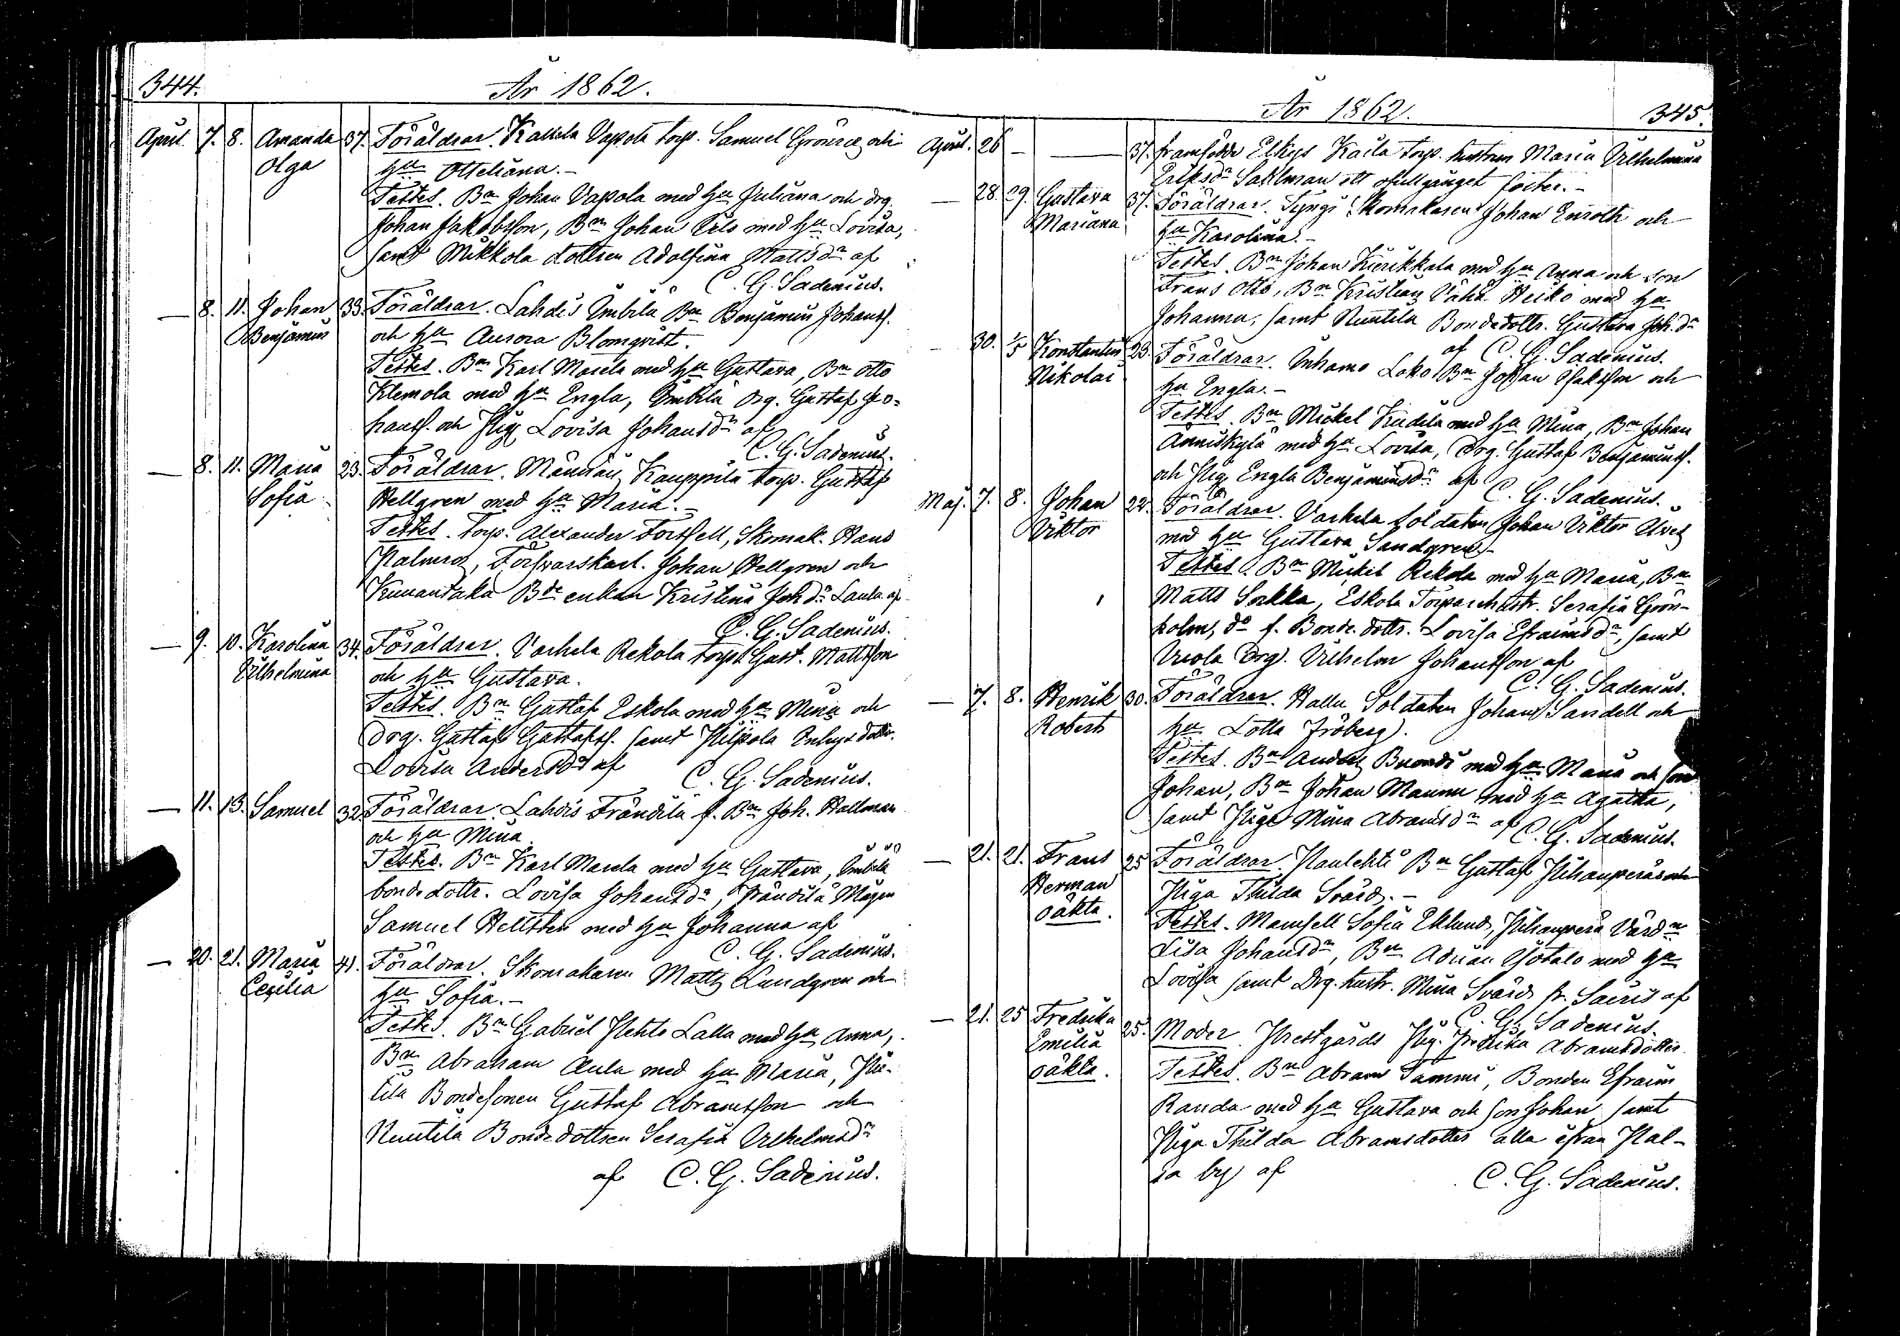 344.
År 1862.
April 7. 8. Amanda 37. Föräldrar. Vapola torp. Samuel och
Olga hu Otteliana.-
Testes. Bn Johan Vapola med hu Juliana och drg.
Johan Jakobsson, Bn Johan med hu Lovisa,
samt Mikkola dottren Adolfina Mattsdr af
C. G. Sadenius.
— 8. 11. Johan 33. Föräldrar. Lahdis Imbila Bn Benjamin Johanss.
Benjamin och hu Aurora Blomqvist.
Testes. Bn Karl Marela med hu Gustava, Bn Otto
Klemola med hu Engla, Imbila drg. Gustaf Jo=
hanss. och Pig. Lovisa Johansdr af
C. G. Sadenius.
— 8. 11. Maria 23. Föräldrar. Kauppila torp. Gustaf
Sofia Hellgren med hu Maria.-
Testes. Torp. Alexander Forssell, Skomak. Hans
Palmros, Försvarskarl. Johan Hellgren och
Bde enkan Kristina Johdr Laula af
C. G. Sadenius.
— 9. 10. Karolina 34. Föräldrar. Varhela Rekola torp. Gust. Mattsson
Vilhelmina och hu Gustava.
Testes. Bn Gustaf Eskola med hu Mina och
Drg. Gustaf Gustafss. samt Pilpola dottr.
Lovisa Andersdr af
C. G. Sadenius.
— 11. 13. Samuel 32. Föräldrar. Lahdis Frändilä f. Bn Joh. Hallman
och hu Mina.
Testes. Bn Karl Marela med hu Gustava, Imbila
bonde dottr. Lovisa Johansdr, Frändilä Mågen
Samuel Hellsten med hu Johanna af
C. G. Sadenius.
— 20. 21. Maria 41. Föräldrar. Skomakaren Matts Lundgren och
Cecilia hu Sofia.-
Testes. Bn Gabriel Lalla med hu Anna,
Bn Abraham Aula med hu Maria,
tila Bondesonen Gustaf Abramsson och
Nuutila Bondedottren Serafia Vilhelmsdr
af C. G. Sadenius.
År 1862.
345.
April. 26 — — 37. framfödde Kaila torp. hustrun Maria Vilhelmina
Eriksdr Sahlman ett ofullgånget foster.-
— 28. 29. Gustava 37. Föräldrar. Syngi Skomakaren Johan Enroth och
Mariana hu Karolina.-
Testes. Bn Johan Kierikkala med hu Anna och son
Frans Otto, Bn Kristian Vähä Heiko med hu
Johanna, samt Nuutila Bondedottr. Gustava Joh.dr
af C. G. Sadenius.
— 30. 1/5 Konstantin 23. Föräldrar. Inhamo Loko Bn Johan Isaksson och
Nikolai hu Engla.-
Testes. Bn Mickel med hu Mina, Bn Johan
Änniskylä med hu Lovisa, Drg. Gustaf Benjaminss.
och Pig. Engla Benjaminsdr af
C. G. Sadenius.
Maj. 7. 8. Johan 22. Föräldrar. Varhela Soldaten Johan Viktor
Viktor med hu Gustava Sandgren.-
Testes. Bn Mickel Rekola med hu Maria, Bn
Matts Sorkka, Eskola Torparehustr. Serafia Grön-
holm, do f. Bonde dottr. Lovisa Efraimsdr samt
Uvola Drg. Vilhelm Johansson af
C. G. Sadenius.
— 7. 8. Henrik 30. Föräldrar. Hallu Soldaten Johan Sandell och
Robert hu Lotta Fröberg.
Testes. Bn Anders Buondi med hu Maria och son
Johan, Bn Johan Maunu med hu Agatha,
samt Piga Mina Abramsdr af
C. G. Sadenius.
— 21. 21. Frans 25 Föräldrar. Bn Gustaf Pihanperä och
Herman Piga Thilda Svärd.-
oäkta. Testes. Mamsell Sofia Eklund, Pihanperä Värdn
Lisa Johansdr, Bn Adrian Ojotalo med hu
Lovisa samt Drg. hustr. Mina Svärd fr. af
C. G. Sadenius.
— 21. 25 Fredrika 25. Moder. Prestgårds Pig. Fredrika Abramsdotter
Emilia Testes. Bn Abram Tammi, Bonden Efraim
oäkta. Randa med hu Gustava och son Johan samt
Piga Thilda Abramsdotter alla ifrån Hal-
la by af
C. G. Sadenius.